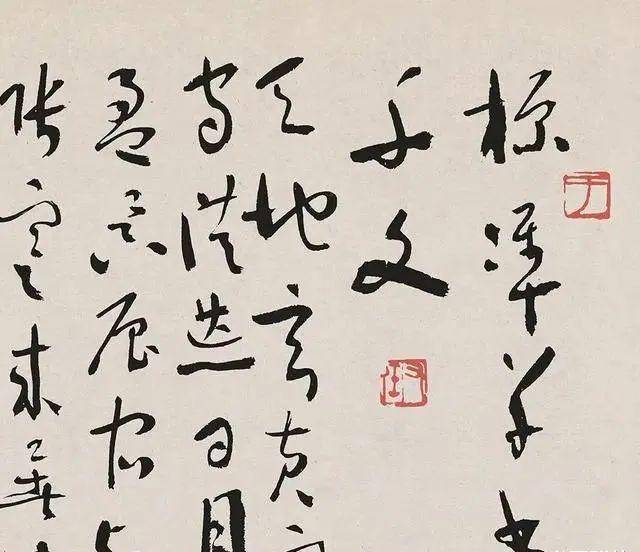 標準草書
千文
天地玄黃宇
宙洪荒日月
盈昃辰宿列
張寒來暑
于
右任